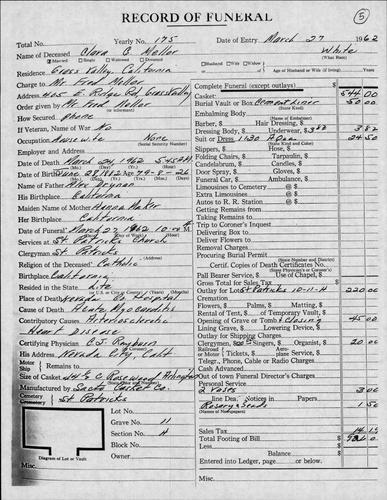 5
RECORD OF FUNERAL
Total No. Yearly No. 175 Date of Entry March 27 1962
Name of Deceased Clara C. Mellor White
(What Race)
Married Single Widowed Divorced Husband Widow of
Residence Grass Valley, California Age of Husband or Wife (if living) Years
Charge to Mr Fred Mellor
Address 405 E. Ridge Rd, Grass Valley
Order given by Mr Fred Mellor
How Secured phone
If Veteran, Name of War No
Occupation Housewife None
(Social Security Number)
Employer and Address
Date of Death March 24 1962 5:45 AM
Date of Birth June 28, 1882 79-8-26
Name of Father Alex Brynan
His Birthplace California
Maiden Name of Mother Hanna Maker
Her Birthplace California
Date of Funeral March 27 1962 10:00 AM
Services at St Patricks Church
Clergyman St Patricks
Religion of the Deceased Catholic
Birthplace California
Resided in the State Life
Place of Death Nevada Co Hospital
Cause of Death Acute Myocarditis
Contributory Causes Arteriosclerotic
Heart Disease
Certifying Physician C.J.
His Address Nevada City, Calif
Motor
Ship Remains to
Size of Casket Rosewood Arlington
Manufactured by Sacto Casket Co.
Cemetery
Crematory St Patricks
Lot No.
Grave No. 11
Section No. H
Block No.
Owner
Diagram of Lot or Vault
Misc.
Complete Funeral (except outlays) $
Casket 544.00
Burial Vault or Box Cement Liner 50.00
(State Kind)
Embalming Body
Barber, $ Hair Dressing, $
Dressing Body, $ Underwear, $ 3.82 3.82
Suit or Dress 24.50
(State Kind and Color)
Slippers, $ Hose, $
Folding Chairs, $ Tarpaulin, $
Candelabrum, $ Candles, $
Door Spray, $ Gloves, $
Funeral Car, $ Ambulance, $
Limousines to Cemetery @ $
Extra Limousines @ $
Autos to R. R. Station @ $
Getting Remains from
Taking Remains to
Trip to Coroner's Inquest
Delivering Box to
Deliver Flowers to
Removal Charges
Procuring Burial Permit
(State Number and District)
Certif. Copies of Death Certificates No.
(State Physician's or Coroner's)
Pall Bearer Service, $ Use of Chapel, $
Gross Total for Sales Tax
Outlay for Lot St Patricks 10-11-H 220.00
Cremation
Flowers, $ Palms, $ Matting, $
Rental of Tent, $ of Temporary Vault, $
Opening of Grave or Tomb & Closing 45.00
Lining Grave, $ Lowering Device, $
Outlay for Shipping Charges
Clergyman $ Singers, $ Organist, $ 20.00
Railroad
or Motor Tickets, $ Aero-
plane Service, $
Telegr., Phone, Cable or Radio Charges
Cash Advanced
Out of town Funeral Director's Charges
Personal Service
2 Veils 3.00
line Dea. Notices in Papers
(Names of Newspapers)
Rosary Beads 1.50
Sales Tax 14.19
Total Footing of Bill $
Less $
Balance $
Entered into Ledger, page or below.
Misc.